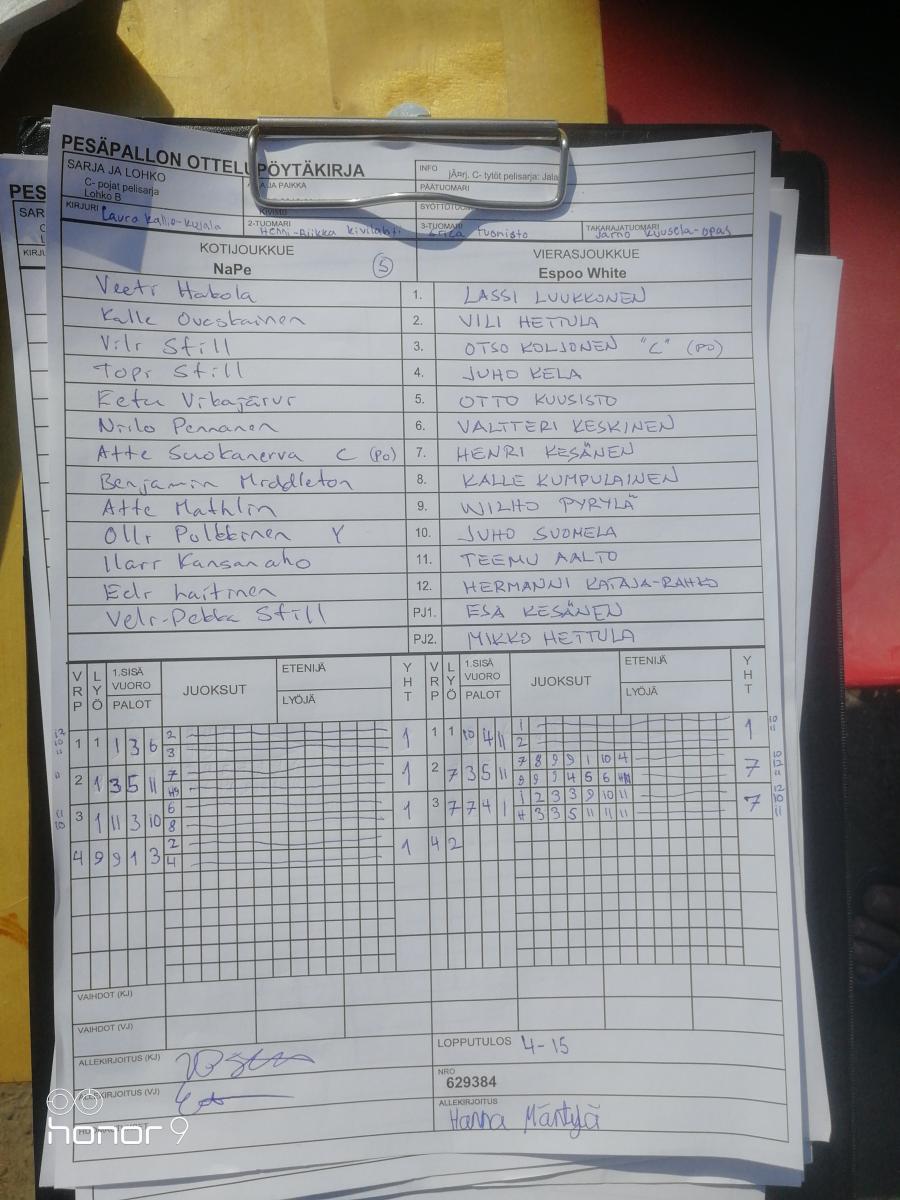 PESÄPALLON OTTELUPÖYTÄKIRJA
SARJA JA LOHKO
C- pojat pelisarja
Lohko B
JA PAIKKA
INFO
jÃ¤rj. C- tytöt pelisarja: Jala
PÄÄTUOMARI
SYÖTTÖTUO
KIRJURI Laura Kallio-Kujala
2-TUOMARI Henni-Riikka Kivilahti
3-TUOMARI Erica Tuonisto
TAKARAJATUOMARI Jarno Kuusela-opas
KOTIJOUKKUE
NaPe 5
VIERASJOUKKUE
Espoo White
Veeti Hakola 1. LASSI LUUKKONEN
Kalle Oveskainen 2. VILI HETTULA
Vili Still 3. OTSO KOLJONEN "C" (PO)
Topi Still 4. JUHO KELA
Eetu Vikajärvi 5. OTTO KUUSISTO
Niilo Pennanen 6. VALTTERI KESKINEN
Atte Suokanerva C (PO) 7. HENRI KESÄNEN
Benjamin Middleton 8. KALLE KUMPULAINEN
Atte Mathlin 9. WILHO PYRYLÄ
Olli Polkkinen Y 10. JUHO SUOMELA
Ilari Kansanaho 11. TEEMU AALTO
Edi Laitinen 12. HERMANNI KATAJA-RAHKO
Veli-Pekka Still PJ1. ESA KESÄNEN
PJ2. MIKKO HETTULA
VRP LYÖ 1.SISÄ VUORO PALOT JUOKSUT ETENIJÄ LYÖJÄ YHT VRP LYÖ 1.SISÄ VUORO PALOT JUOKSUT ETENIJÄ LYÖJÄ YHT
1 1 1 3 6 2 1 1 1 10 4 11 1 1
3 2
2 1 3 5 11 7 1 2 7 3 5 11 7 8 9 9 1 10 4 7
9 9 9 4 5 6
3 1 11 3 10 6 1 3 7 7 4 1 1 2 3 3 9 10 11 7
8 3 3 5 11 11 11
4 9 9 1 3 2 1 4 2
4
VAIHDOT (KJ)
VAIHDOT (VJ)
ALLEKIRJOITUS (KJ)
LOPPUTULOS 4-15
ALLEKIRJOITUS (VJ)
NRO
629384
ALLEKIRJOITUS
Hanna Mäntylä
honor 9